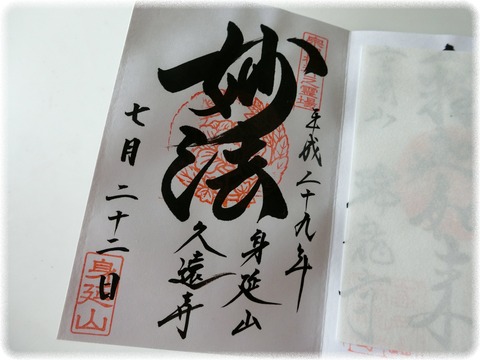 平成二十九年
妙法
身延山
久遠寺
七月二十二日
身延山